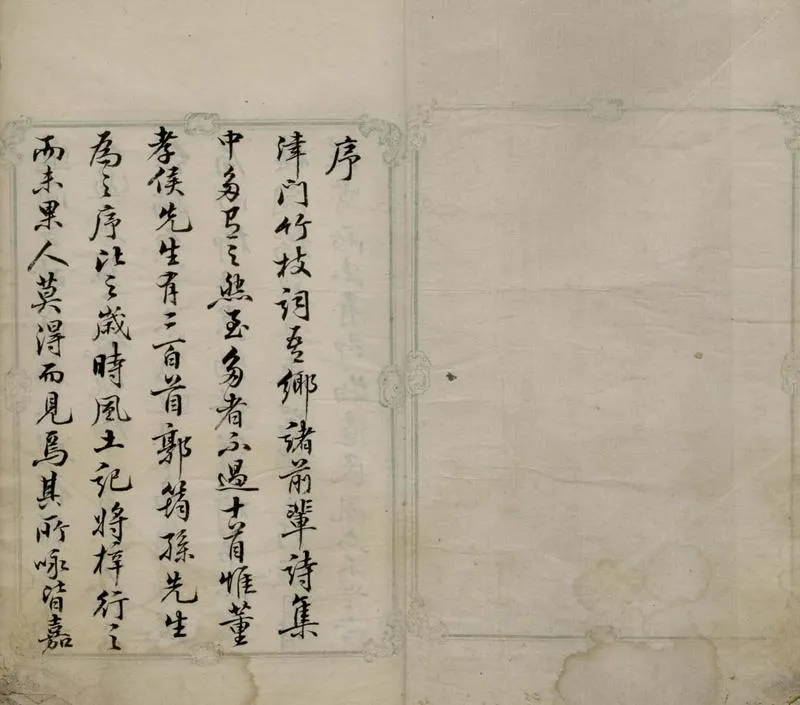 序
津门竹枝詞吾鄉諸前輩詩集
中多有之然至多者不過十首惟董
孝侯先生有二百首郭筠孫先生
為之序比之歲時風土記將梓行之
而未果人莫得而見焉其所咏皆嘉